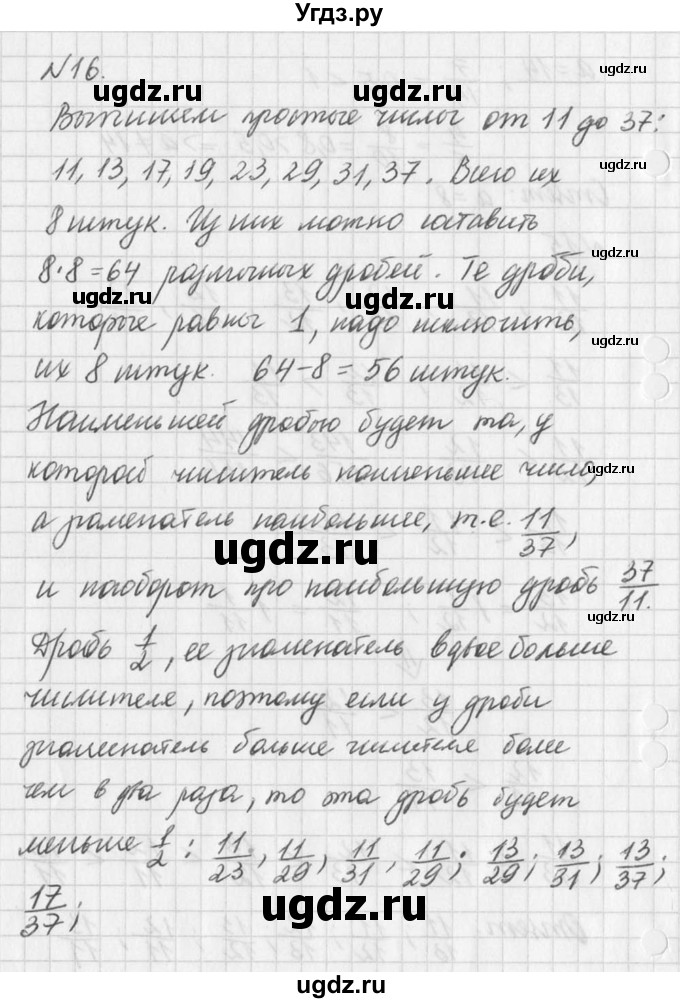 Угдз.ру
№16.
Выпишем простые числа от 11 до 37:
11, 13, 17, 19, 23, 29, 31, 37. Всего их
8 штук. Из них можно составить
8·8=64 различных дробей. Те дроби,
которые равны 1, надо исключить,
их 8 штук. 64-8=56 штук.
Наименьшей дробью будет та, у
которой числитель наименьшее число,
а знаменатель наибольшее, т.е. 11/37,
и наоборот про наибольшую дробь 37/11.
Дробь 1/2, ее знаменатель вдвое больше
числителя, поэтому если у дроби
знаменатель больше числителя более
чем в два раза, то эта дробь будет
меньше 1/2: 11/23, 11/29; 11/31, 11/29; 13/29; 13/31; 13/37;
17/37;
ugdz.ru
ugdz.ru
ugdz.ru
ugdz.ru
ugdz.ru
ugdz.ru
ugdz.ru
ugdz.ru
ugdz.ru
ugdz.ru
ugdz.ru
ugdz.ru
ugdz.ru